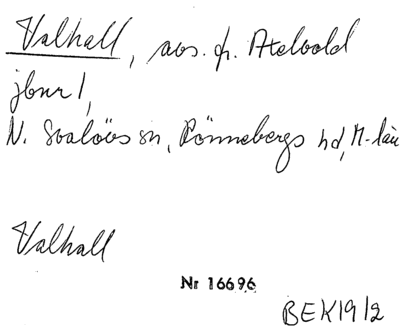 Valhall, avs. fr. Atelvold
jbnr 1,
N. Svalövs sn, Rönnebergs hd, M-län
Valhall
Nr 16696
BEK 19/2